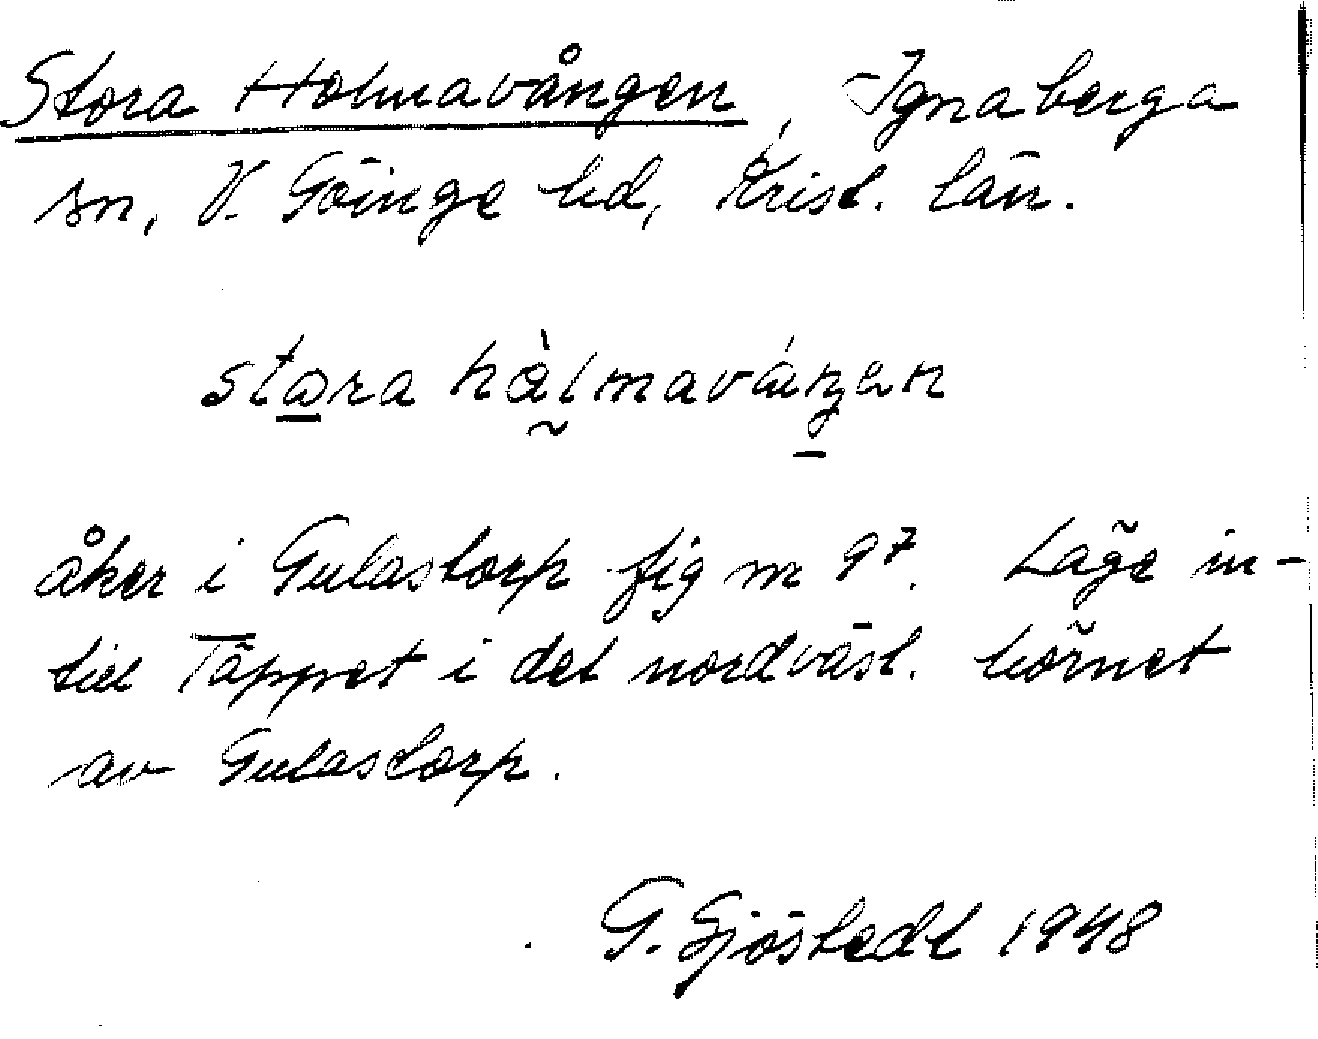 Stora Holmavången, Ignaberga
sn, V. Göinge hd, Krist. län.
stora hàlmaváŋen
åker i Gulastorp fig nr 97. Läge in-
till Täppet i det nordväst. hörnet
av Gulastorp.
G. Sjöstedt 1948